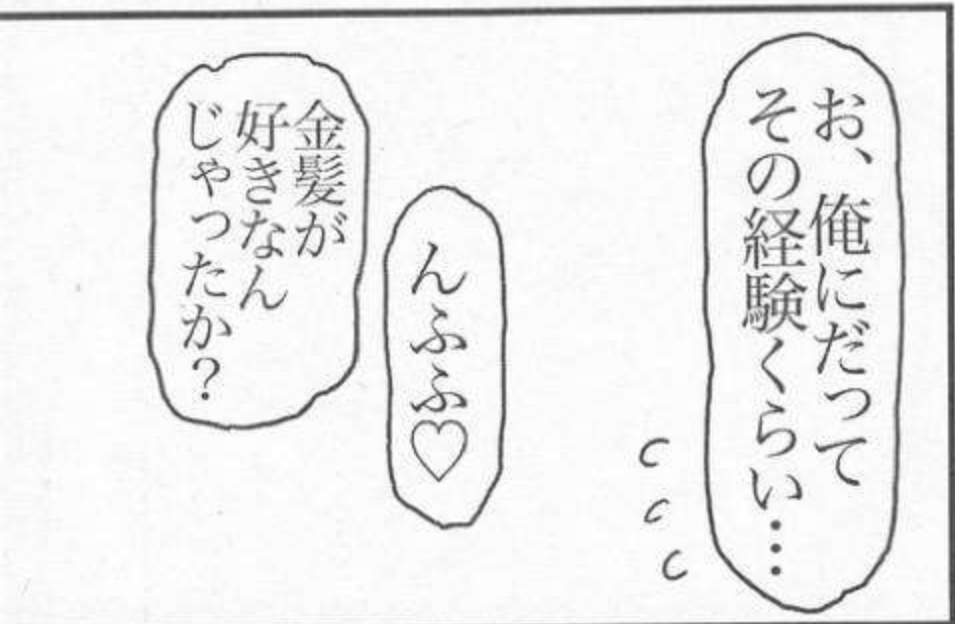 お、俺にだって
その経験くらい…
んふふ♡
金髪が
好きなん
じゃったか？